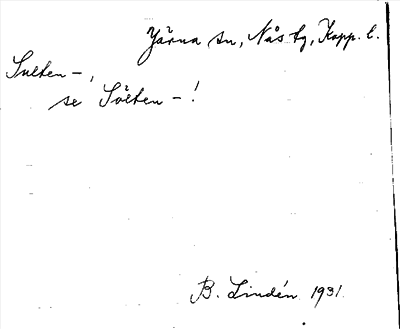 Järna sn, Nås tg, Kopp. l.
Sulten –,
se Sölten – !
B. Lindén 1931.